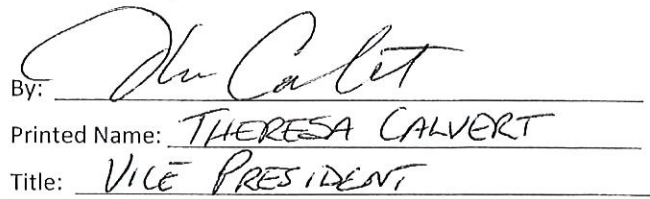 By:
Printed Name: THERESA CALVERT
Title: VICE PRESIDENT